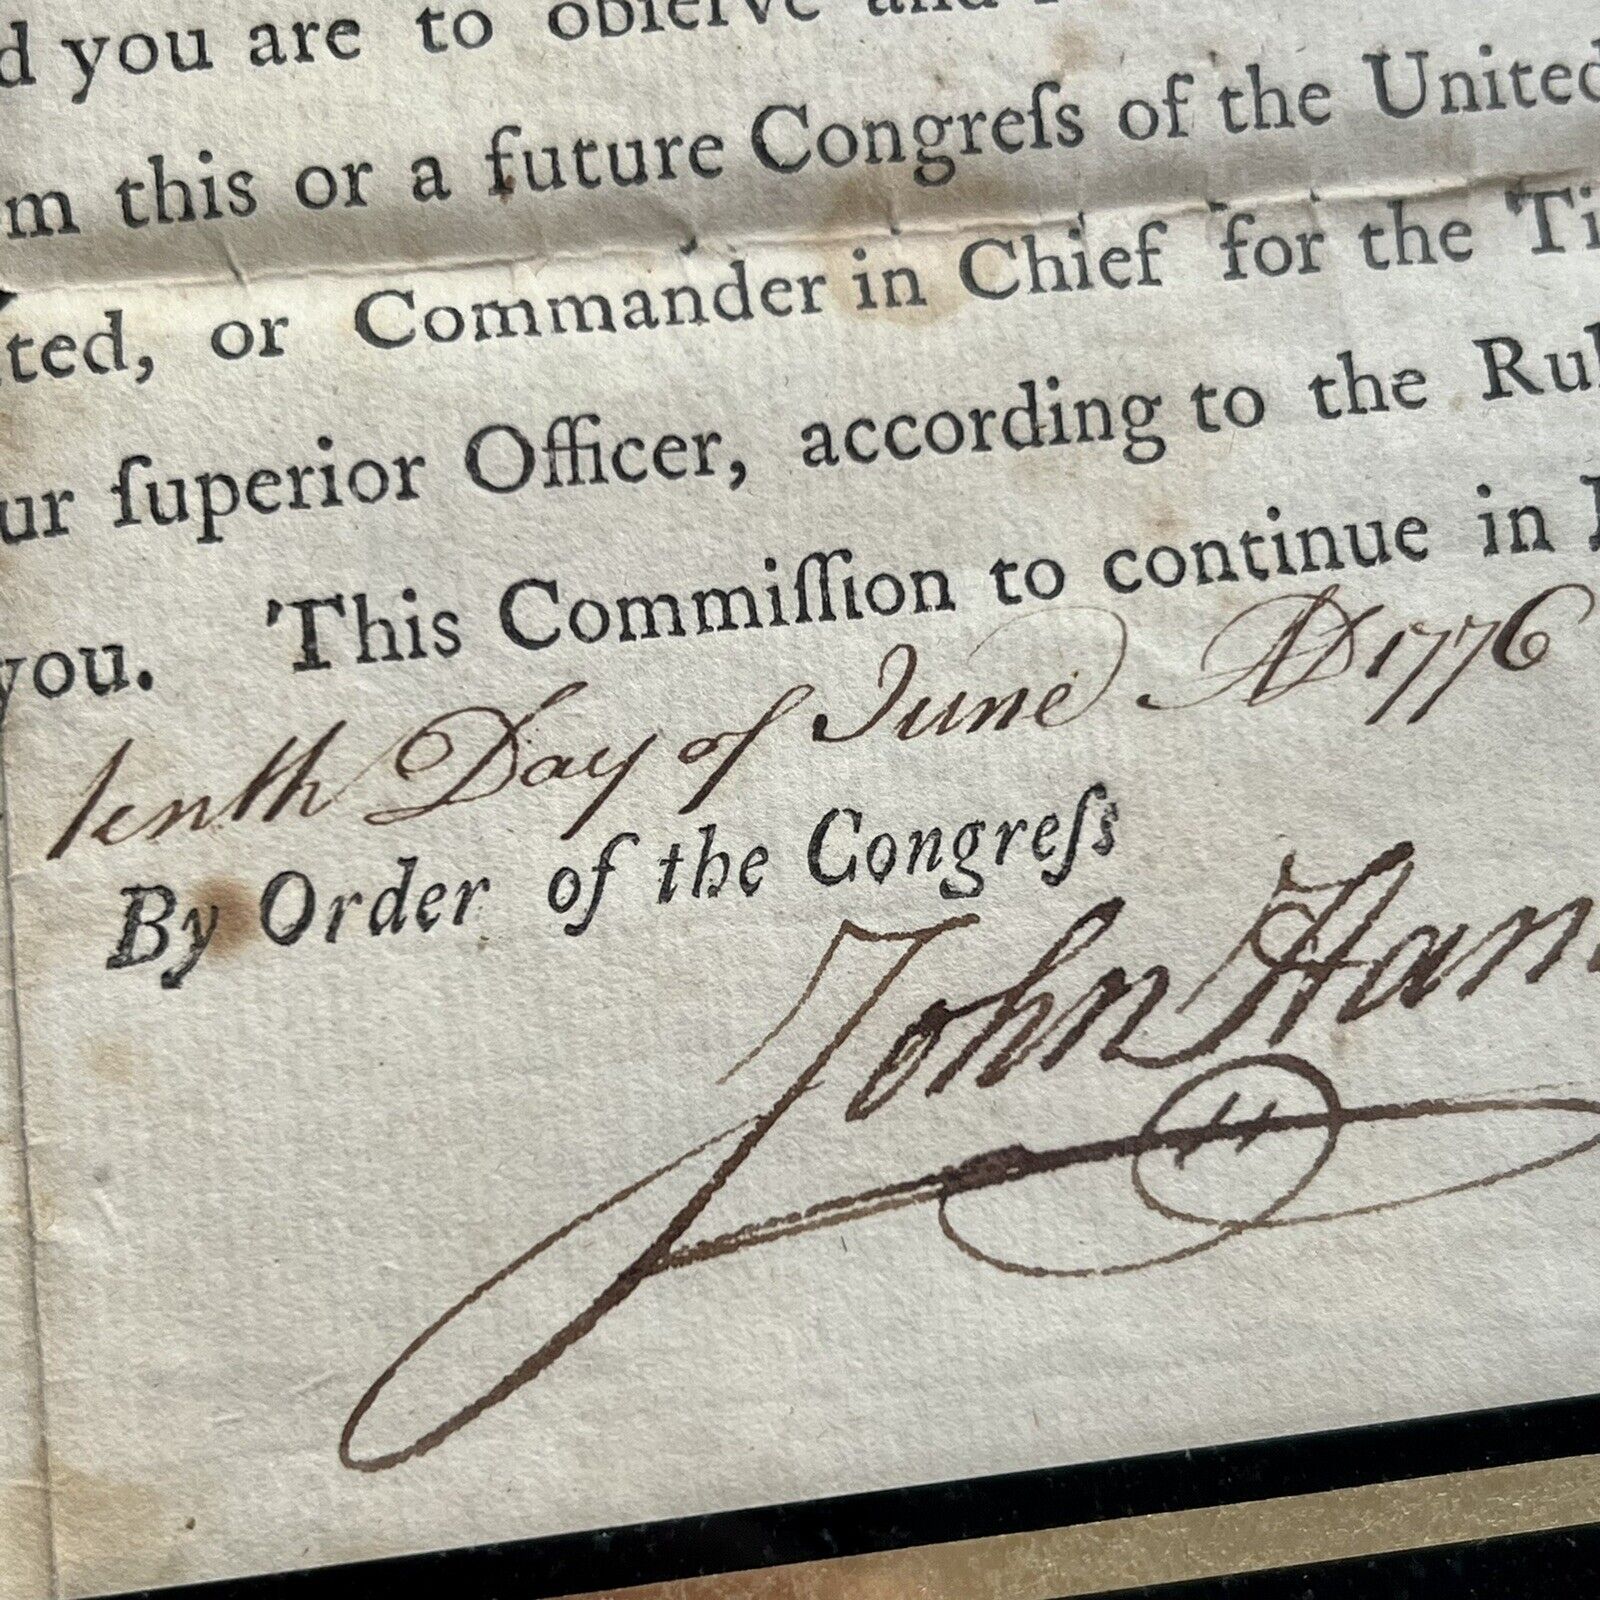 d you are to obſerve and
m this or a future Congreſs of the United
ted, or Commander in Chief for the Ti
ur ſuperior Officer, according to the Rul
you. This Commiſſion to continue in
tenth Day of June AD 1776
By Order of the Congreſs
John Han